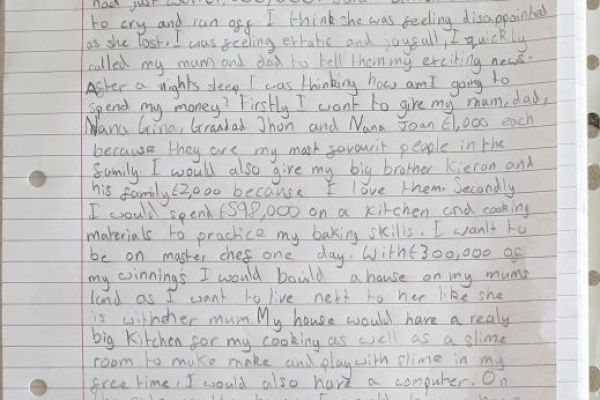 to cry and run off I think she was feeling disappointed
as she lost. I was feeling ectatic and joyfull, I quickly
called my mum and dad to tell them my exciting news.
After a nights sleep I was thinking how am I going to
spend my money? Firstly I want to give my mum, dad,
Nana Gina, Grandad Jhon and Nana Joan £1,000 each
because they are my most favourit people in the
family. I would also give my big brother Kieran and
his family £2,000 because I love them. Secondly
I would spend £598,000 on a kitchen and cooking
materials to practice my baking skills. I want to
be on master chef one day. With £300,000 of
my winnings I would bould a house on my mums
land as I want to live nett to her like she
is with her mum. My house would have a realy
big kitchen for my cooking as well as a slime
room to make make and play with slime in my
free time. I would also a computer. On